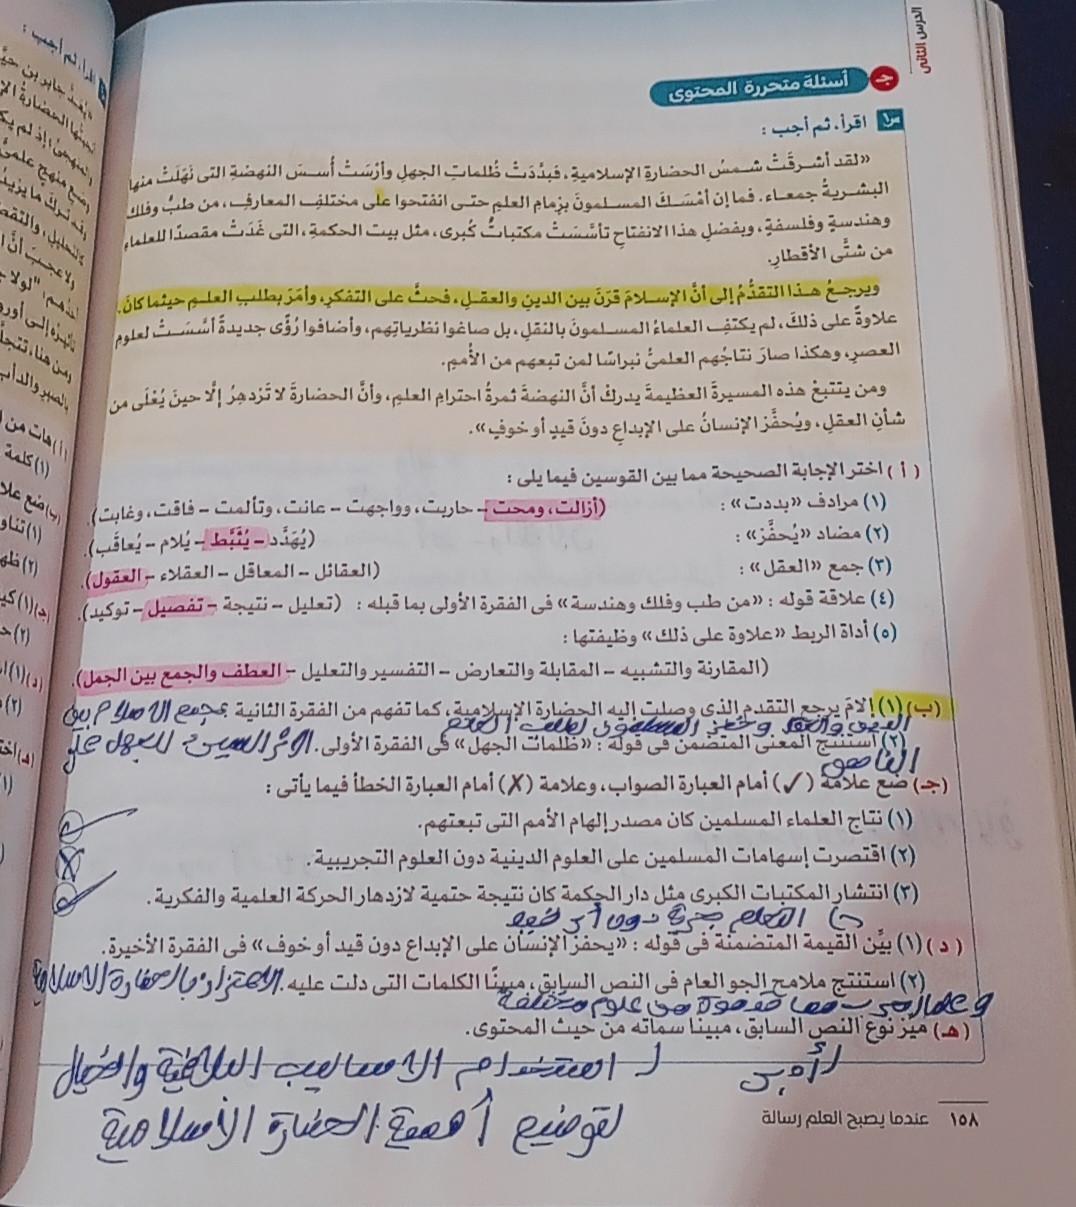 الدرس الثانى
جـ أسئلة متحررة المحتوى
س١ اقرأ، ثم أجب :
«لقد أشرقَتْ شمسُ الحضارةِ الإسلاميةِ، فبدَّدَتْ ظُلماتِ الجهلِ وأرْسَتْ أُسسَ النهضةِ التى نَهَلَتْ منها
البشريةُ جمعاء. فما إن أمْسَكَ المسلمونَ بزِمامِ العلمِ حتى انفتحوا على مختلفِ المعارفِ، من طبٍّ وفلكٍ
وهندسةٍ وفلسفةٍ، وبفضلِ هذا الانفتاحِ تأسَّسَتْ مكتباتٌ كُبرى، مثل بيت الحكمةِ، التى غَدَتْ مقصدًا للعلماء
من شتَّى الأقطارِ.
ويرجعُ هذا التقدُّمُ إلى أنَّ الإسلامَ قرَنَ بين الدينِ والعقلِ، فحثَّ على التفكرِ، وأمَرَ بطلبِ العلمِ حيثما كانَ.
علاوةً على ذلكَ، لم يكتفِ العلماءُ المسلمونَ بالنقلِ، بل صاغوا نظرياتِهم، وأضافوا رُؤًى جديدةً أسَّسَتْ لعلومِ
العصرِ، وهكذا صارَ نتاجُهم العلمىُّ نبراسًا لمن تبعهم من الأُممِ.
ومن يتتبعْ هذه المسيرةَ العظيمةَ يدركْ أنَّ النهضةَ ثمرةُ احترامِ العلمِ، وأنَّ الحضارةَ لا تَزدهرُ إلَّا حينَ يُعْلَى من
شأنِ العقلِ، ويُحفَّز الإنسانُ على الإبداعِ دونَ قيدٍ أو خوفٍ».
( أ ) اختر الإجابة الصحيحة مما بين القوسين فيما يلى :
(١) مرادف «بددت» : (أزالت، ومحت – حاربت، وواجهت – عانت، وتألمت – فاقت، وغابت).
(٢) مضاد «يُحفَّز» : (يُهَدَّد – يُثَبَّط – يُلام – يُعاقَب).
(٣) جمع «العقل» : (العقائل – المعاقل – العقلاء – العقول).
(٤) علاقة قوله : «من طب وفلك وهندسة» فى الفقرة الأولى بما قبله : (تعليل – نتيجة – تفصيل – توكيد).
(٥) أداة الربط «علاوة على ذلك» وظيفتها :
(المقارنة والتشبيه – المقابلة والتعارض – التفسير والتعليل – العطف والجمع بين الجمل).
(ب) (١) إلامَ يرجع التقدم الذى وصلت إليه الحضارة الإسلامية، كما تفهم من الفقرة الثانية بجمع الاسلام بين
الدين والعقل وحفز المسلمون لطلب العلم
(٢) استنتج المعنى المتضمن فى قوله : «ظلمات الجهل» فى الفقرة الأولى. الأثر السيئ للجهل على
(جـ) ضع علامة (✓) أمام العبارة الصواب، وعلامة (✗) أمام العبارة الخطأ فيما يأتى :
(١) نتاج العلماء المسلمين كان مصدر إلهام الأمم التى تبعتهم. ✓
(٢) اقتصرت إسهامات المسلمين على العلوم الدينية دون العلوم التجريبية. ✗
(٣) انتشار المكتبات الكبرى مثل دار الحكمة كان نتيجة حتمية لازدهار الحركة العلمية والفكرية. ✓
التعلم بحرية دون أى
( د ) (١) بيِّن القيمة المتضمنة فى قوله : «يحفز الإنسان على الإبداع دون قيد أو خوف» فى الفقرة الأخيرة.
(٢) استنتج ملامح الجو العام فى النص السابق، مبينًا الكلمات التى دلت عليه. الاعتزاز بالحضارة الاسلامية
قدموه من علوم مختلفة
(هـ) ميز نوع النص السابق، مبينا سماته من حيث المحتوى.
أدبى استخدام الاساليب البلاغية والخيال
لتوضيح أهمية الحضارة الأسلامية
١٥٨ عندما يصبح العلم رسالة